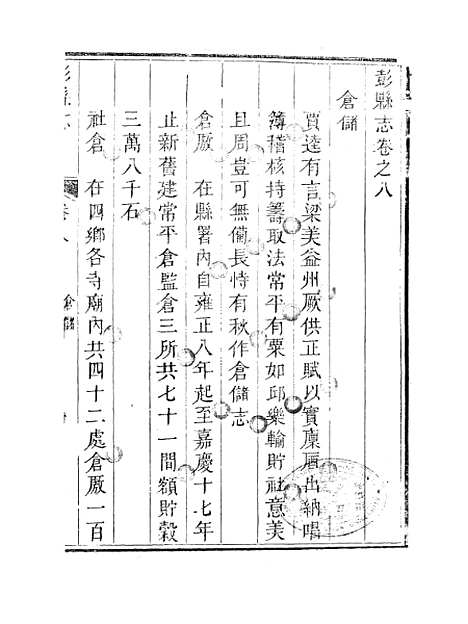 彭縣志卷之八
倉儲
賈逵有言梁美益州厥供正賦以實廩庾出納唱
籌稽核持籌取法常平有粟如邱樂輸貯社意美
且周豈可無備長恃有秋作倉儲志
倉厫 在縣署內自雍正八年起至嘉慶十七年
止新舊建常平倉監倉三所共七十一間額貯穀
三萬八千石
社倉 在四鄉各寺廟內共四十二處倉厫一百
彭縣志
卷八
倉儲